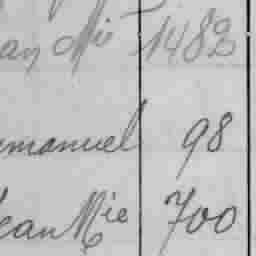 an Mie 1482
manuel 98
Jean Mie 700